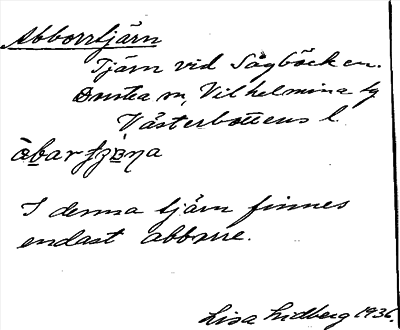 Abborrtjärn
Tjärn vid Sågbäcken.
m, Vilhelmina sg
Västerbottens l.
I denna tjärn finnes
endast abborre.
Lisa Lidberg 1936.